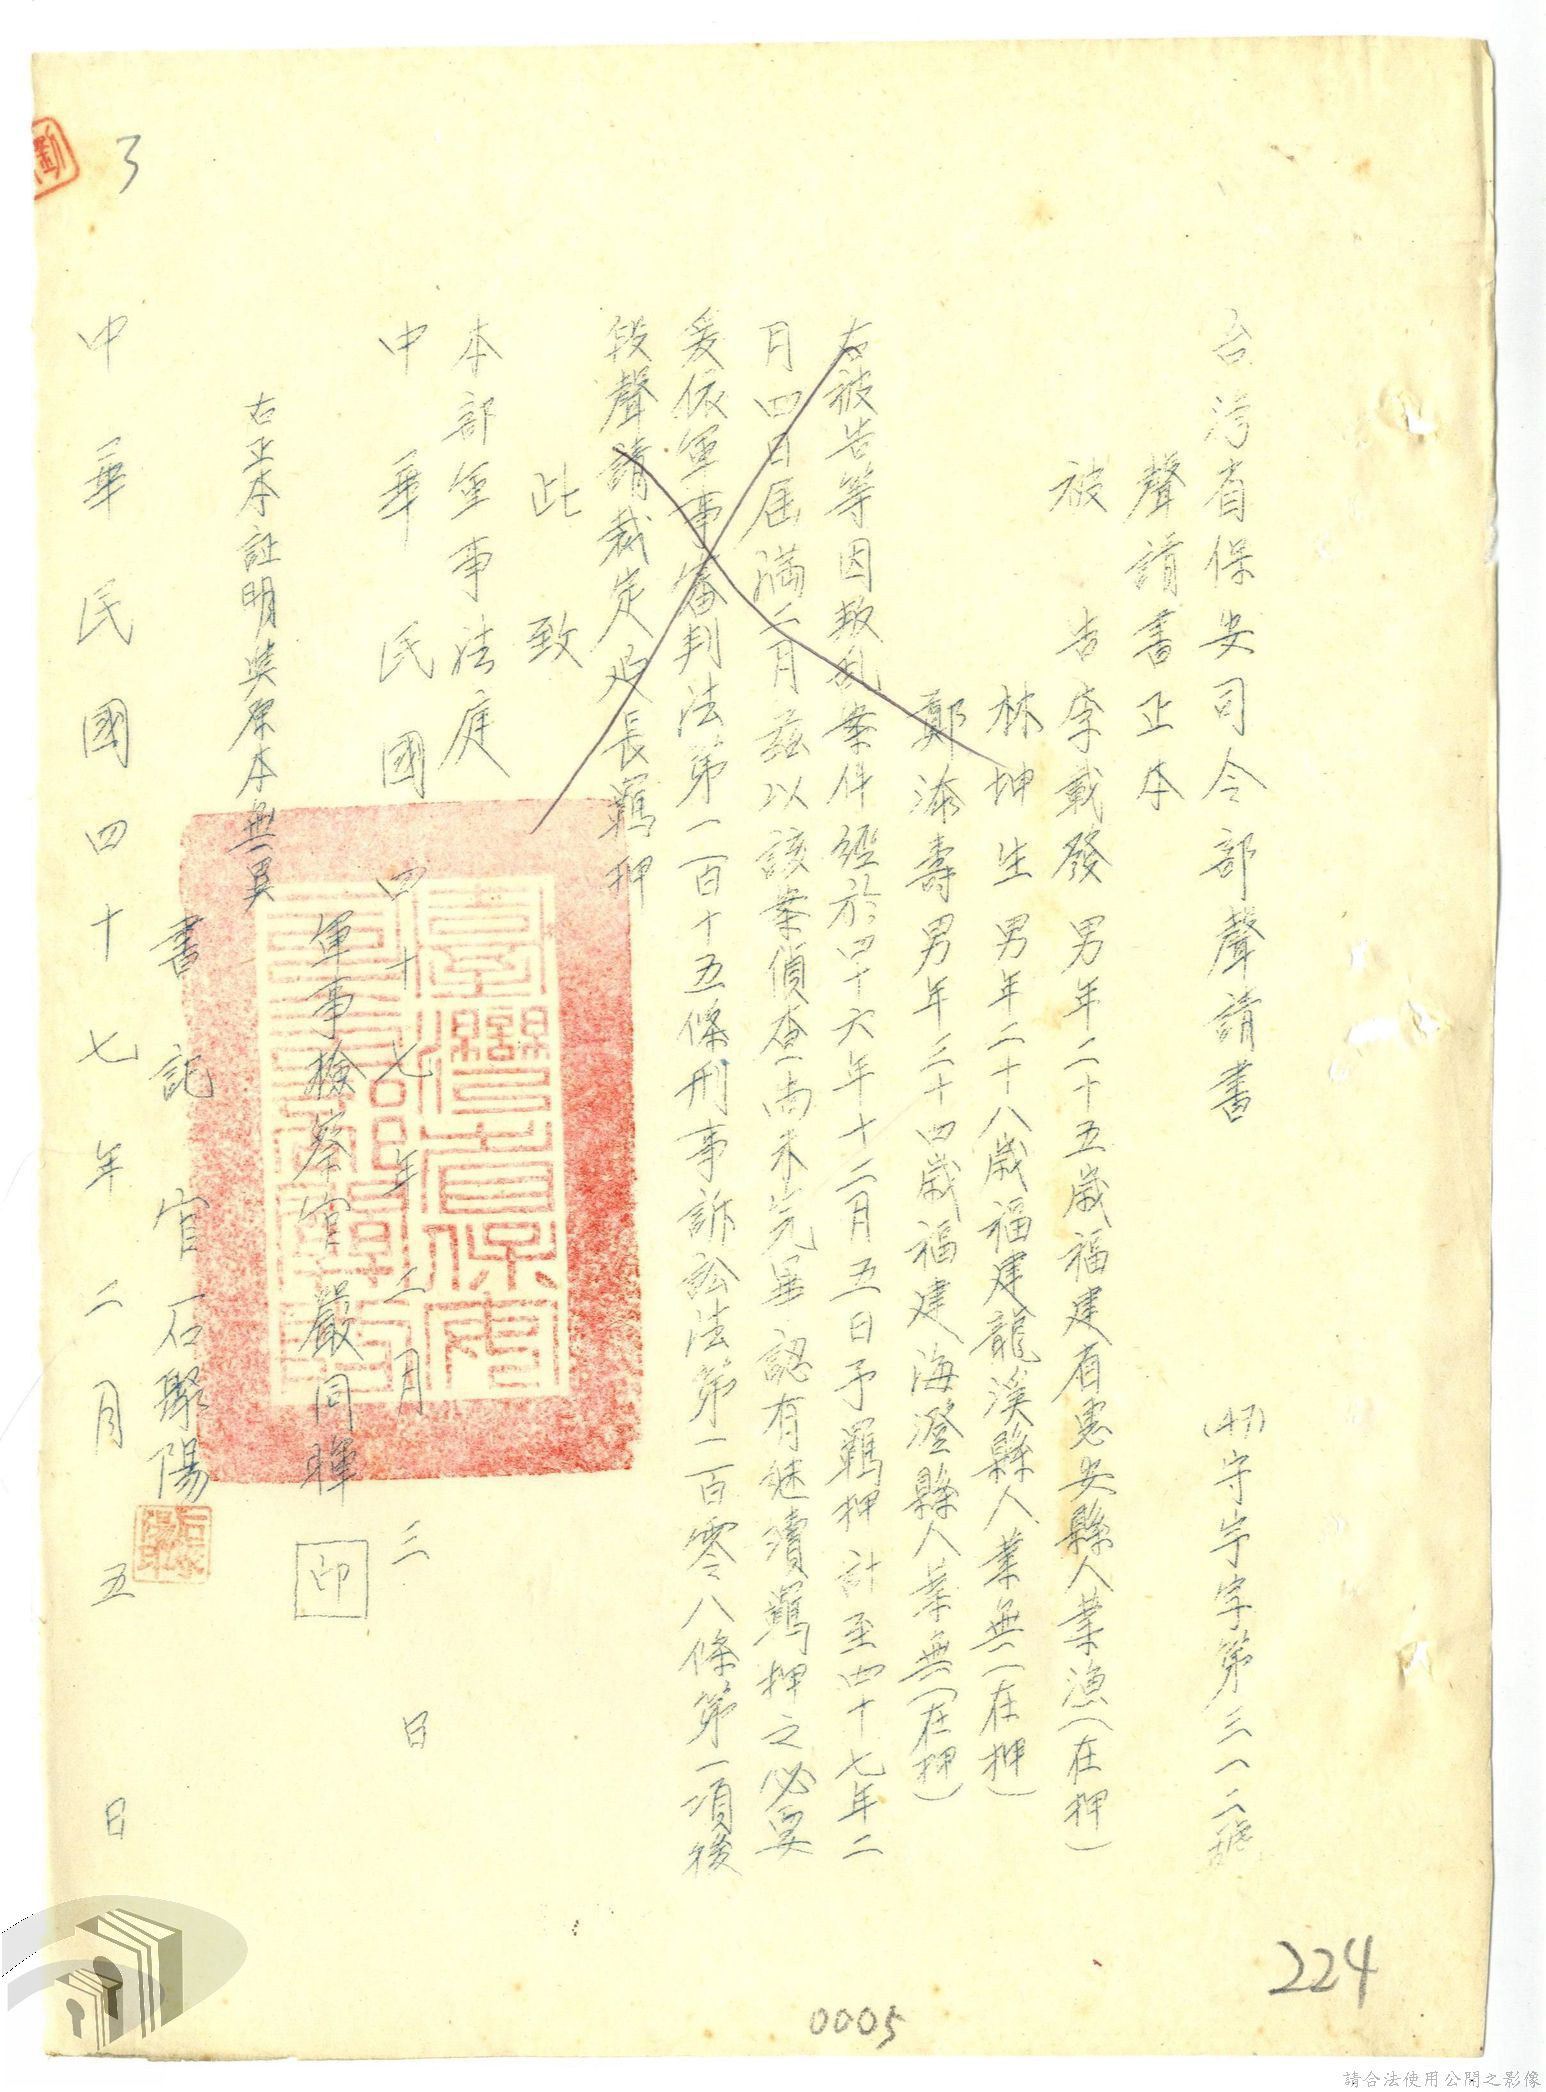 台湾省保安司令部聲請書
(47)守字第三一二號
聲請書正本
被告李載發男年二十五歲福建省惠安縣人業漁(在押)
林坤生男年二十八歲福建龍溪縣人業無(在押)
鄭添壽男年三十四歲福建海澄縣人業無(在押)
右被告等因叛乱案件經於四十六年十二月五日予羈押計至四十七年二
月四日屆滿二月茲以該案偵查尚未完畢認有継續羈押之必要
爰依軍事審判法第一百十五條刑事訴訟法第一百零八條第一項後
段聲請裁定延長羈押
此致
本部軍事法庭
中華民國四十七年二月三日
軍事檢察官嚴同暉
印
右正本証明與原本無異
書記官石聚陽
中華民國四十七年二月五日
3
224
0005
請合法使用公開之影像